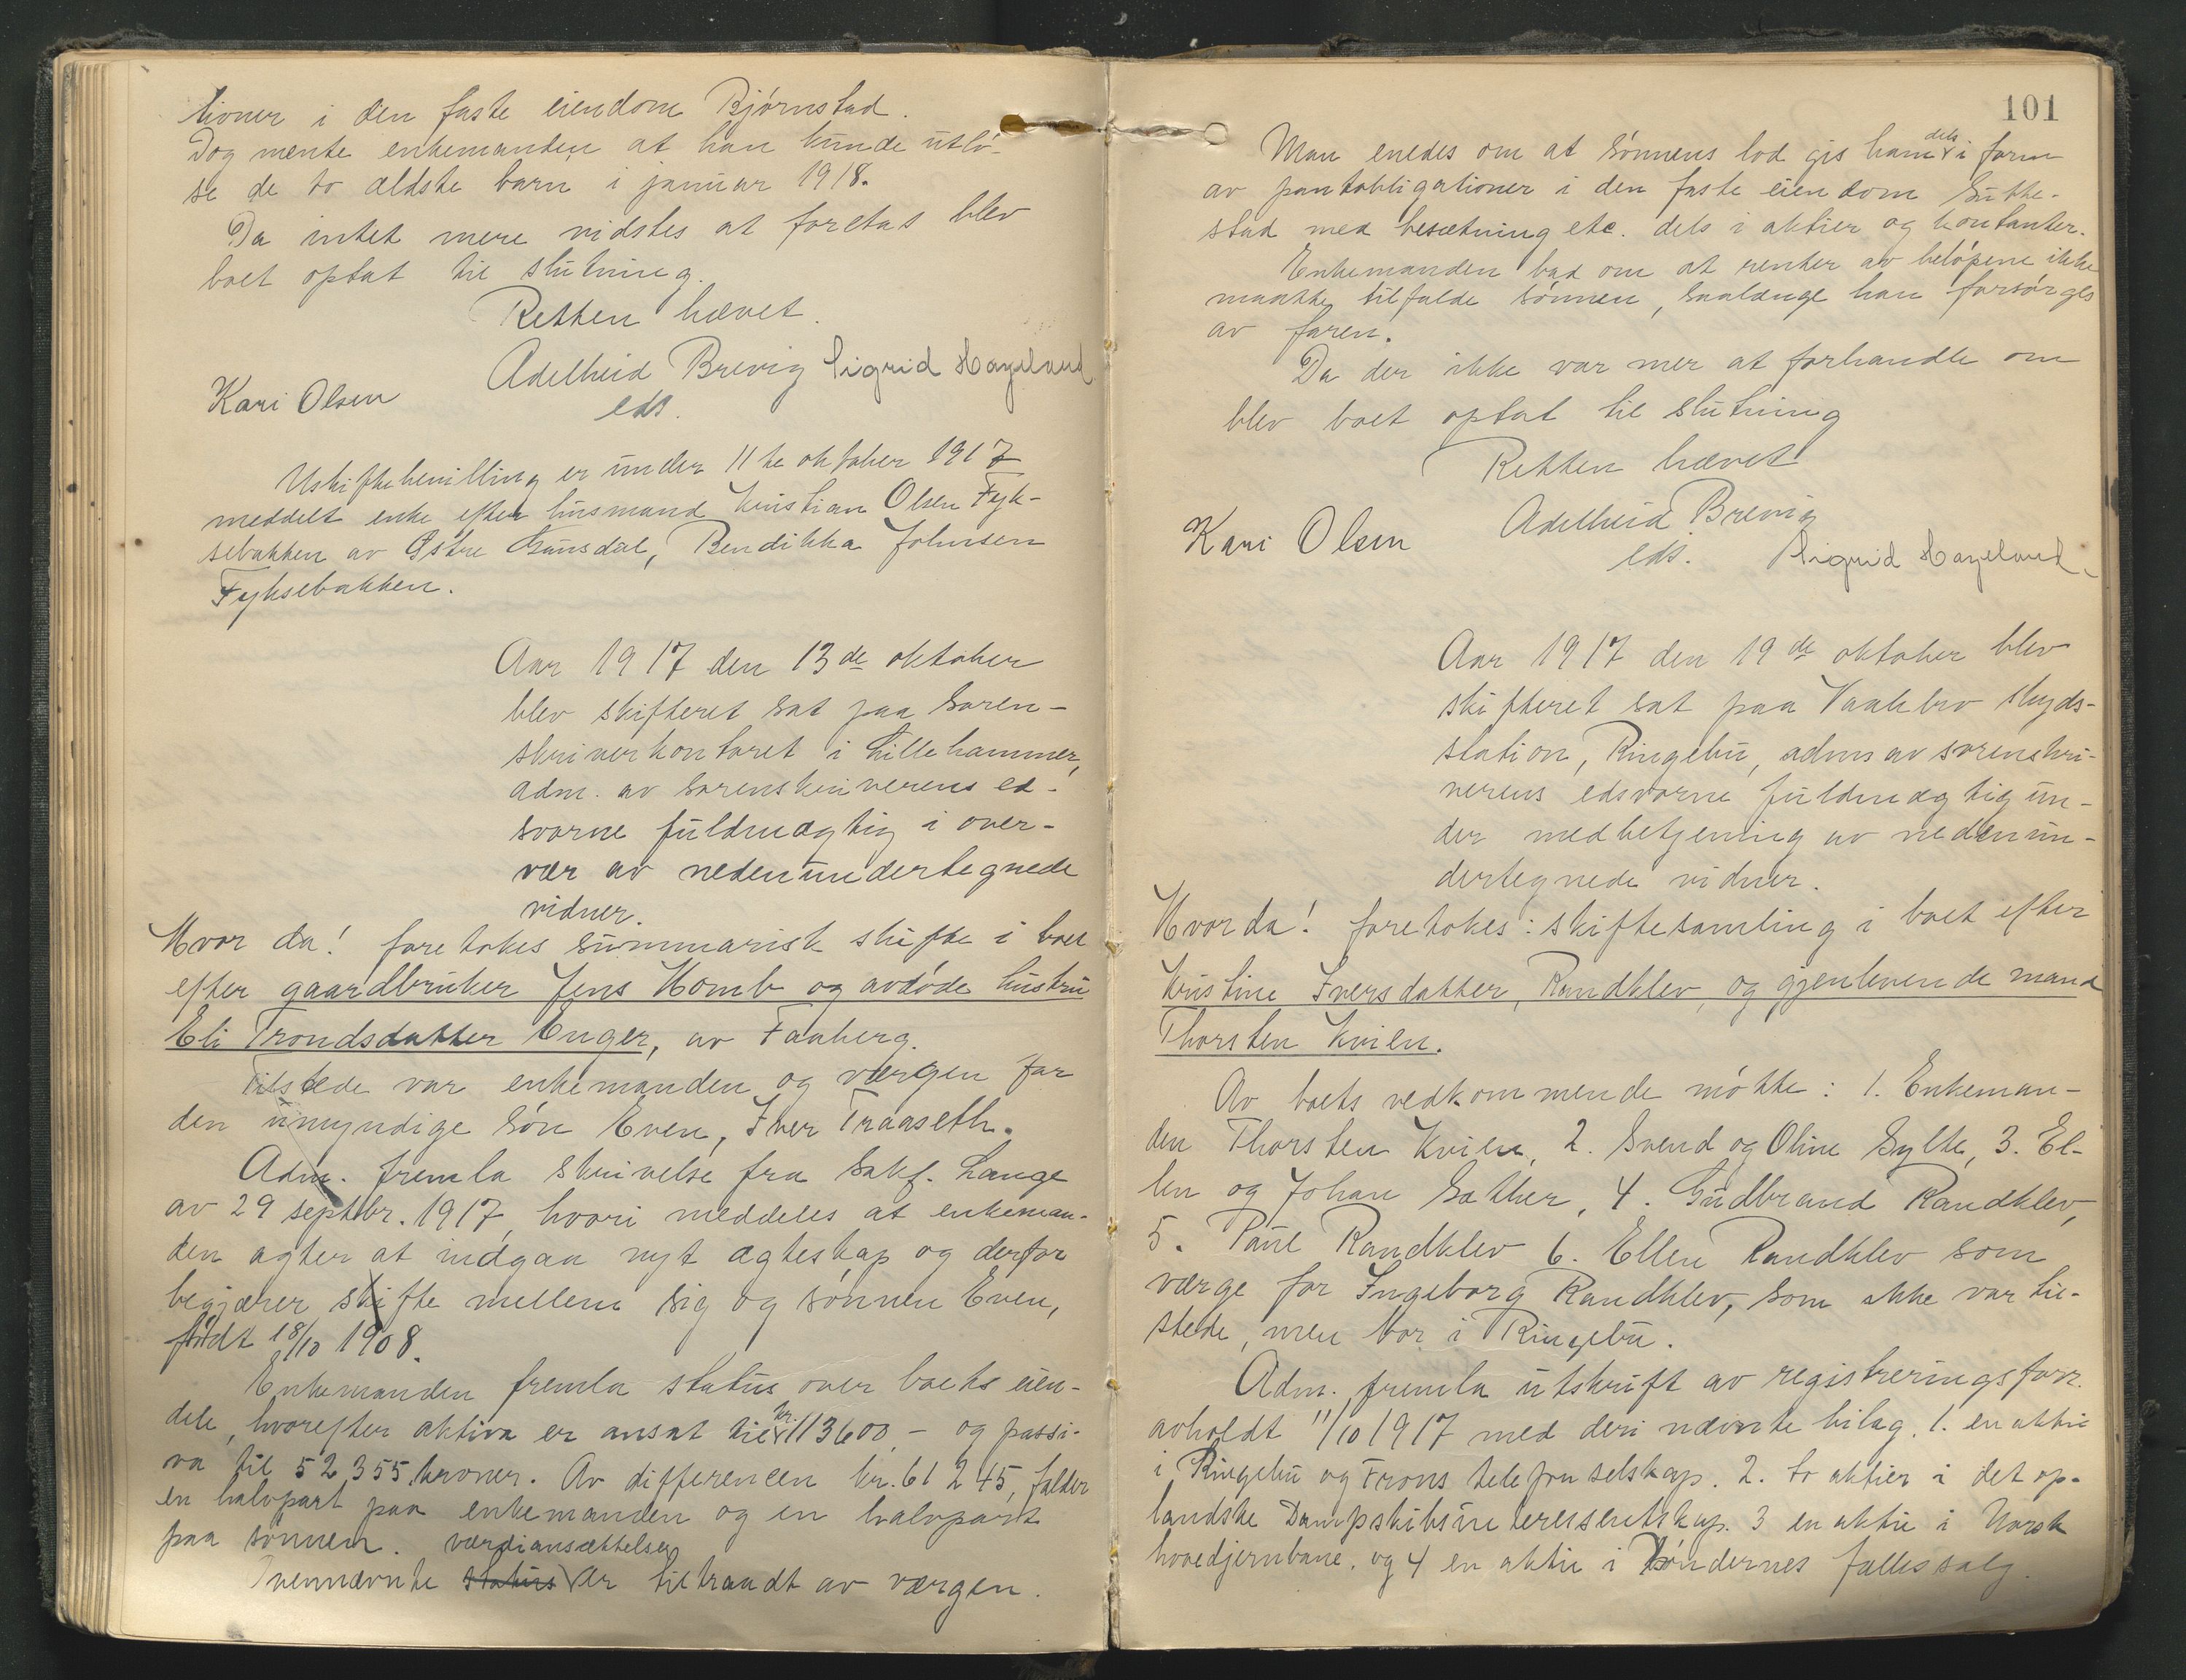 tioner i den faste eiendom Bjørnstad.
Dog mente enkemanden at han kunde utlø-
se de to ældste barn i januar 1918.
Da intet mere vidstes at foretas blev
boet optat til slutning.
Retten hævet.
Adelheid Brevig Sigrid Hageland
Kari Olsen
eds.
Uskiftebevilling er under 11te oktober 1917
meddelt enke efter husmand Kristian Olsen Fyk-
sebakken av Østre Gausdal, Bendikka Johnsen
Fyksebakken.
Aar 1917 den 13de oktober
blev skifteret sat paa Soren-
skriverkontoret i Lillehammer,
adm. av Sorenskriverens ed-
svorne fuldmægtig i over-
vær av nedenundertegnede
vidner.
Hvor da! foretokes summarisk skifte i boet
efter gaardbruker Jens Homb og avdøde hustru
Eli Trondsdatter Enger, av Faaberg.
Tilstede var enkemanden og værgen for
den umyndige søn Even, Iver Traaseth.
Adm. fremla skrivelse fra Sakf. Lange
av 29 septbr. 1917, hvori meddeles at enkeman-
den agter at indgaa nyt ægteskap og derfor
begjærer skifte mellem sig og sønnen Even,
født 18/10 1908.
Enkemanden fremla status over boets eien-
dele, hvorefter aktiva er ansat til kr. 113600,- og passi-
va til 52 355 kroner. Av differencen kr. 61 245, falder
en halvpart paa enkemanden og en halvpart
paa sønnen. værdiansættelser
Ovennævnte status er tiltraadt av værgen.
101
Man enedes om at sønnens lod gis ham dels i form
av pantobligationer i den faste eiendom Sutte-
stad med besætning etc. dels i aktier og kontanter.
Enkemanden bad om at renter av beløpene ikke
maatte tilfalde sønnen, saalænge han forsørges
av faren.
Da der ikke var mer at forhandle om
blev boet optat til slutning
Retten hævet
Adelheid Brevig
Kari Olsen
eds. Sigrid Hageland.
Aar 1917 den 19de oktober blev
skifteret sat paa Vaalebro skyds-
station, Ringebu, adm av sorenskri-
verens edsvorne fuldmægtig un-
der medbetjening av nedenun-
dertegnede vidner.
Hvor da! foretokes: skiftesamling i boet efter
Kristine Iversdatter, Randklev, og gjenlevende mand
Thorsten Kvien.
Av boets vedkommende møtte: 1. Enkeman-
den Thorsten Kvien, 2. Svend og Oline Sylte, 3. El-
len og Johan Sæther, 4. Gudbrand Randklev,
5. Paul Randklev 6. Ellen Randklev som
værge for Ingeborg Randklev, som ikke var til-
stede, men bor i Ringebu.
Adm. fremla utskrift av registreringsforr.
avholdt 11/10 1917 med deri nævnte bilag. 1. en aktie
i Ringebu og Frons telefonselskap. 2. to aktier i det op-
landske Dampskibsinteressentskap. 3 en aktie i Norsk
hovedjernbane. og 4 en aktie i bøndernes fællessalg.